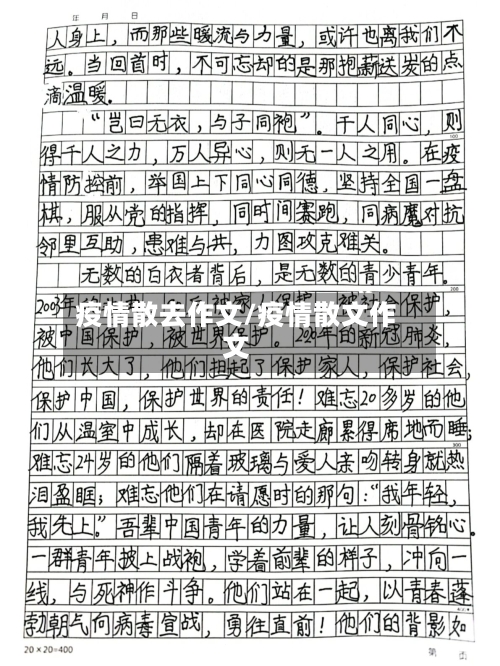 年 月 日
人身上，而那些暖流与力量，或许也离我们不
远。当回首时，不可忘却的是那抱薪送炭的点
滴温暖.
“岂曰无衣，与子同袍”。千人同心，则
100
得千人之力，万人异心，则无一人之用。在疫
情防控前，举国上下同心同德，坚持全国一盘
棋，服从党的指挥，同时间赛跑，同病魔对抗
邻里互助，患难与共，力图攻克难关。
无数的白衣者背后，是无数的青少青年。
200
2003年的 保护，
疫情散去作文/疫情散文作
文
被中国保护，被世界保护。 年的新冠肺炎，
他们长大了，他们担起了保护家人，保护社会，
保护中国，保护世界的责任！难忘20多岁的他
们从温室中成长，却在医院走廊累得席地而睡；
300
难忘24岁的他们隔着玻璃与爱人亲吻转身就热
泪盈眶；难忘他们在请愿时的那句：“我年轻，
我先上。”吾辈中国青年的力量，让人刻骨铭心。
一群青年披上战袍，学着前辈的样子，冲向一
线，与死神作斗争。他们站在一起，以青春蓬
勃朝气向病毒宣战，勇往直前！他们的背影如
20×20=400
第 页